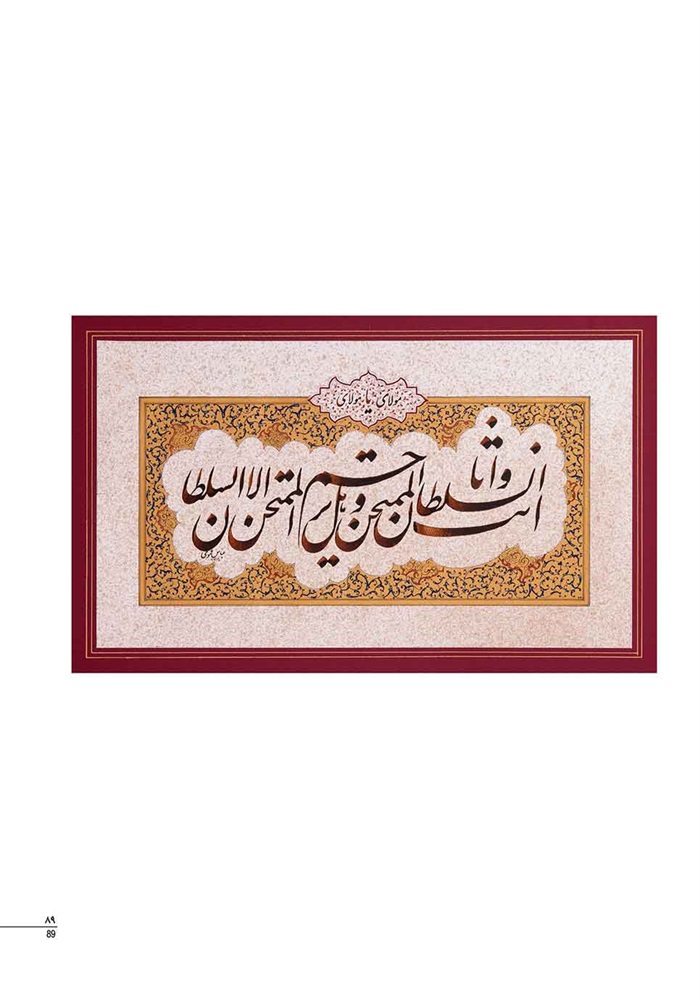 مولای یا مولای
انت السلطان و انا الممتحن و هل یرحم الممتحن الا السلطان
۸۹
89